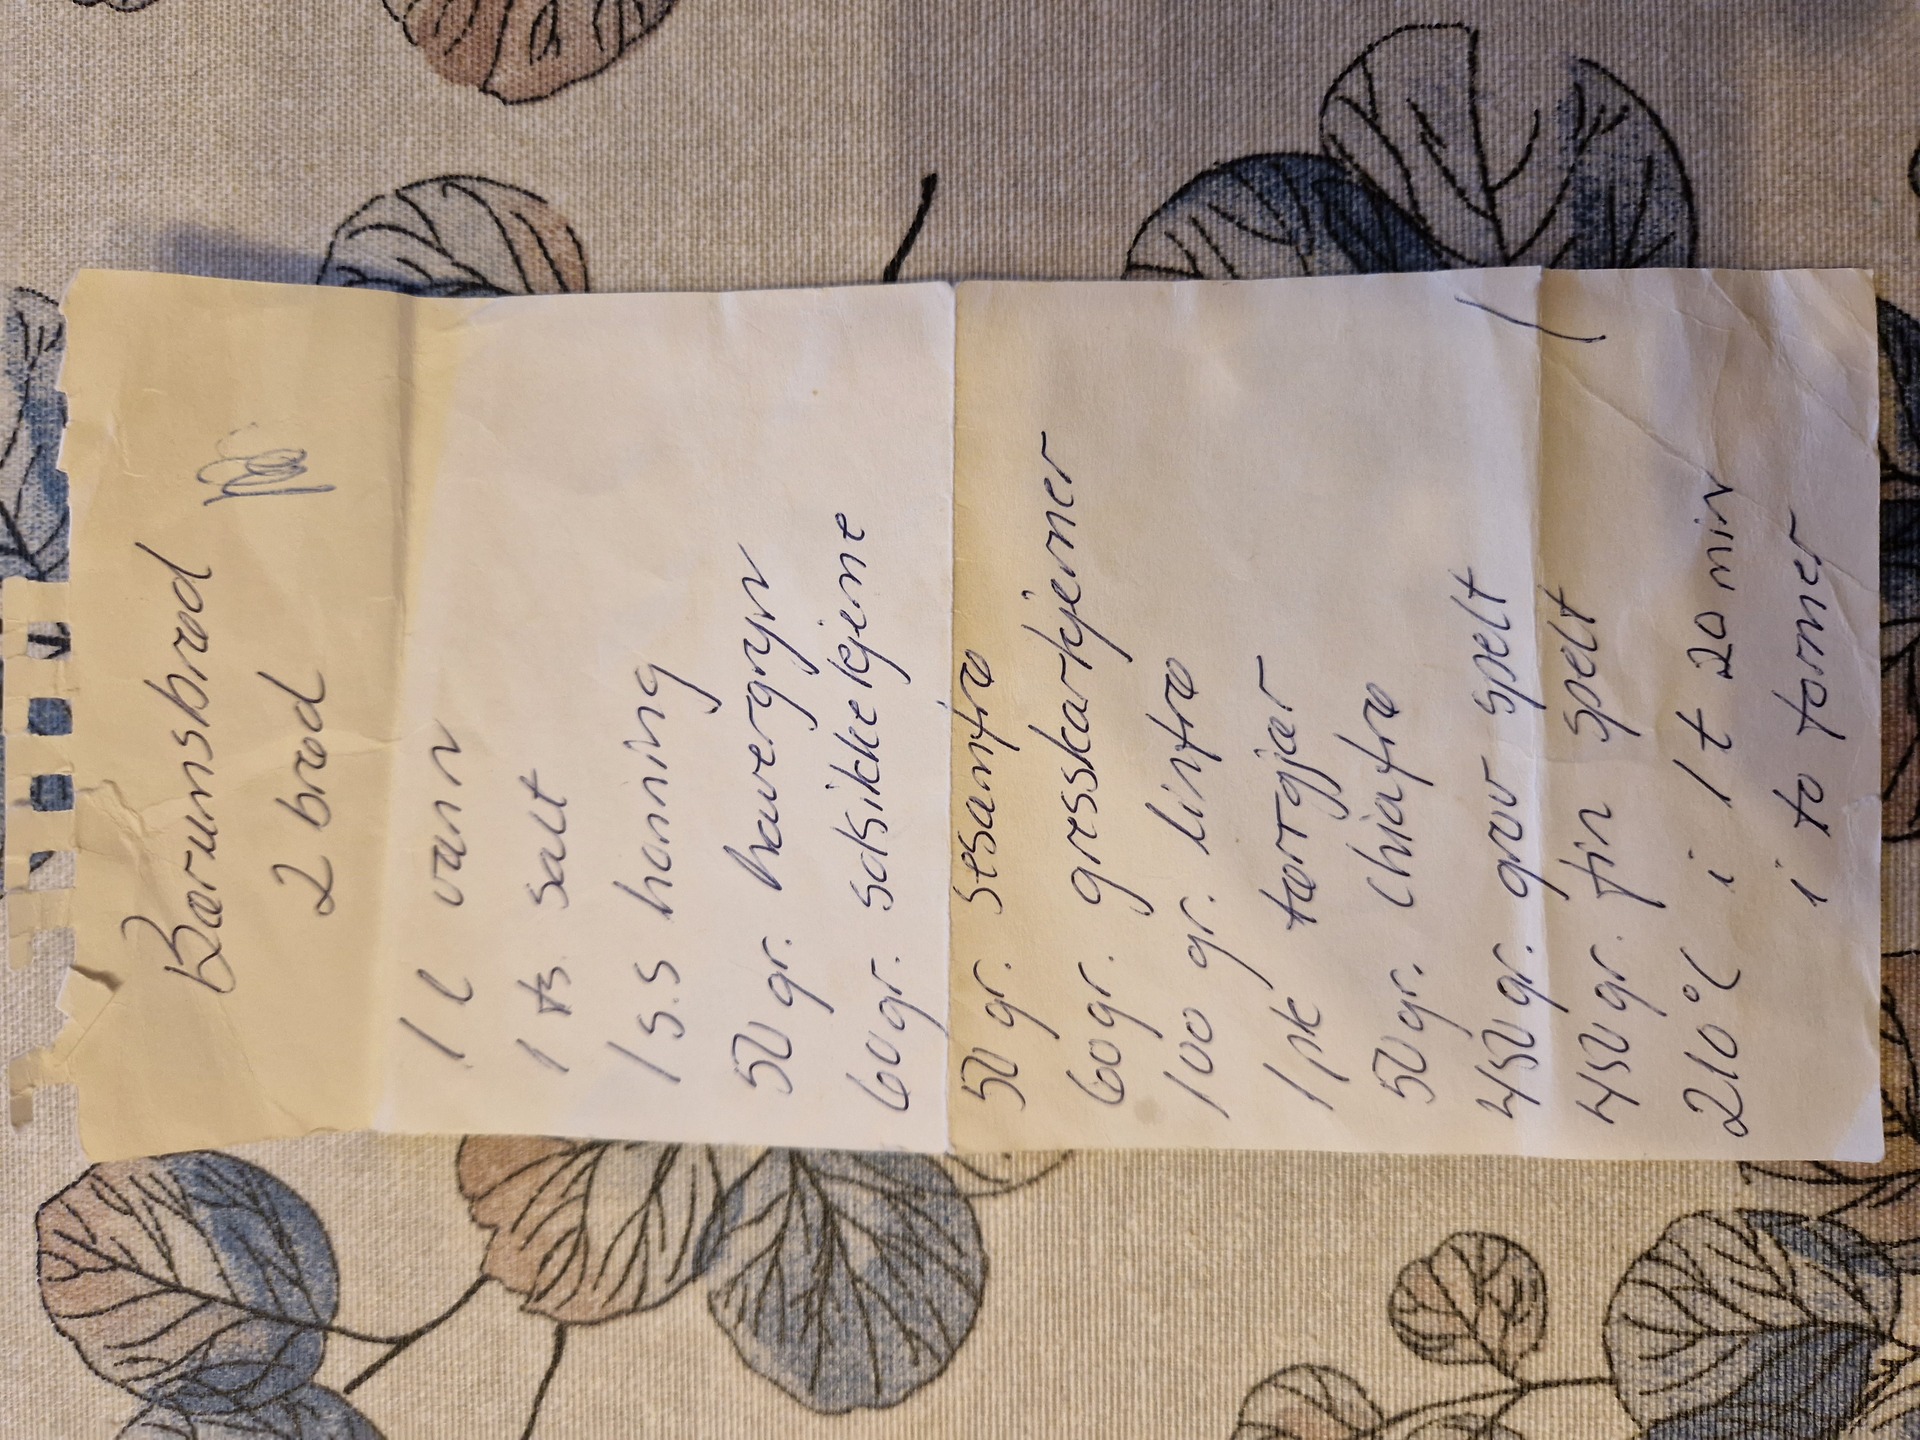 Bærumsbrød
2 brød
1 l vann
1 ts salt
1 s.s honning
50 gr. havergryn
60 gr. solsikkekjerne
50 gr. sesamfrø
60 gr. gresskarkjerner
100 gr. linfrø
1 pk tørrgjær
50 gr. Chiafrø
450 gr. grov spelt
450 gr. fin spelt
210°C i 1 t 20 min
i to former